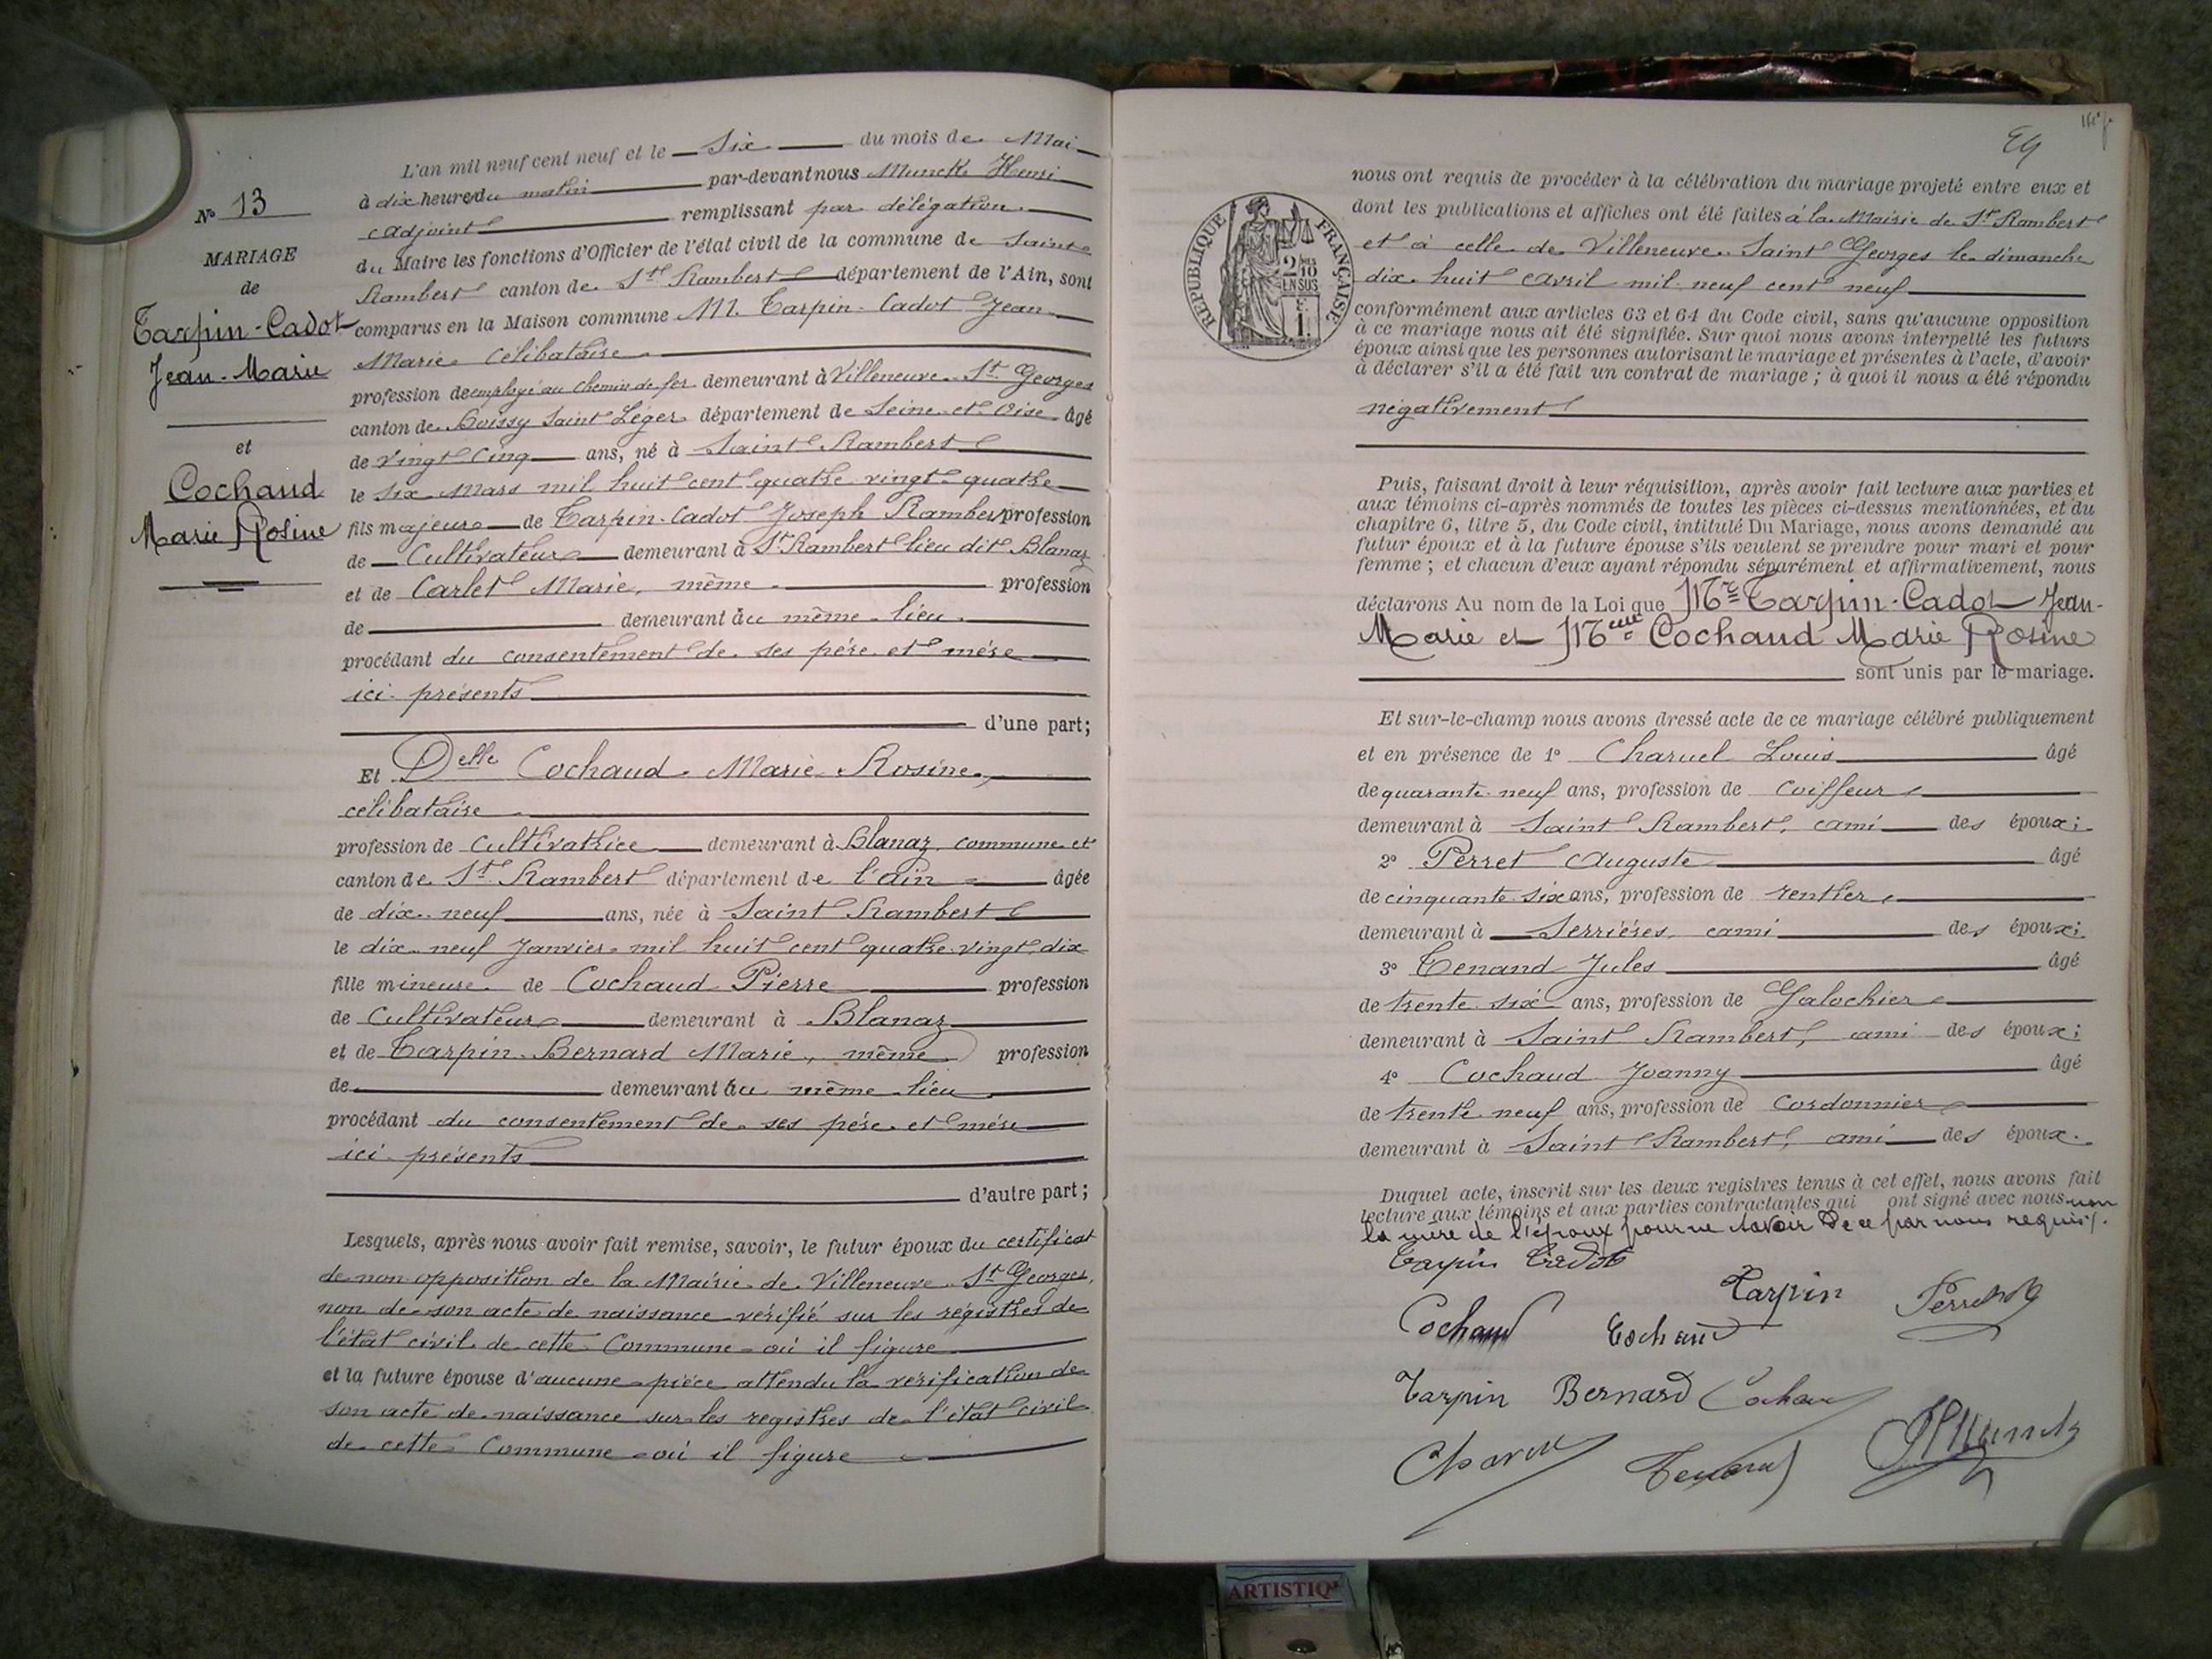 L'an mil neuf cent neuf et le Six du mois de Mai
à dix heure du matin par-devant nous Munck Henri
adjoint remplissant par délégation
du Maire les fonctions d'Officier de l'état civil de la commune de Saint
Rambert canton de St Rambert département de l'Ain, sont
comparus en la Maison commune M. Tarpin-Cadot Jean
Marie célibataire
profession de employé au chemin de fer demeurant à Villeneuve St Georges
canton de Boissy Saint Léger département de Seine et Oise âgé
de vingt cinq ans, né à Saint Rambert
le six Mars mil huit cent quatre vingt quatre
fils majeur de Tarpin-Cadot Joseph Rambert profession
de Cultivateur demeurant à St Rambert lieu dit Blanaz
et de Carlet Marie, même profession
de demeurant au même lieu
procédant du consentement de ses père et mère
ici présents
d'une part;
Et Delle Cochaud Marie Rosine,
célibataire
profession de Cultivatrice demeurant à Blanaz commune et
canton de St Rambert département de l'ain âgée
de dix neuf ans, née à Saint Rambert
le dix neuf Janvier mil huit cent quatre vingt dix
fille mineure de Cochaud Pierre profession
de Cultivateur demeurant à Blanaz
et de Tarpin-Bernard Marie, même profession
de demeurant au même lieu
procédant du consentement de ses père et mère
ici présents
d'autre part;
Lesquels, après nous avoir fait remise, savoir, le futur époux du certificat
de non opposition de la Mairie de Villeneuve St Georges,
non de son acte de naissance vérifié sur les régistres de
l'état civil de cette Commune où il figure
et la future épouse d'aucune pièce attendu la vérification de
son acte de naissance sur les registres de l'état civil
de cette Commune où il figure
No 13
MARIAGE
de
Tarpin-Cadot
Jean-Marie
et
Cochaud
Marie Rosine
nous ont requis de procéder à la célébration du mariage projeté entre eux et
dont les publications et affiches ont été faites à la Mairie de St Rambert
et à celle de Villeneuve Saint Georges le dimanche
dix huit avril mil neuf cent neuf
conformément aux articles 63 et 64 du Code civil, sans qu'aucune opposition
à ce mariage nous ait été signifiée. Sur quoi nous avons interpellé les futurs
époux ainsi que les personnes autorisant le mariage et présentes à l'acte, d'avoir
à déclarer s'il a été fait un contrat de mariage ; à quoi il nous a été répondu
négativement
Puis, faisant droit à leur réquisition, après avoir fait lecture aux parties et
aux témoins ci-après nommés de toutes les pièces ci-dessus mentionnées, et du
chapitre 6, titre 5, du Code civil, intitulé Du Mariage, nous avons demandé au
futur époux et à la future épouse s'ils veulent se prendre pour mari et pour
femme ; et chacun d'eux ayant répondu séparément et affirmativement, nous
déclarons Au nom de la Loi que Mr Tarpin-Cadot Jean-
Marie et Melle Cochaud Marie Rosine
sont unis par le mariage.
Et sur-le-champ nous avons dressé acte de ce mariage célébré publiquement
et en présence de 1o Charuel Louis âgé
de quarante neuf ans, profession de coiffeur
demeurant à Saint Rambert, ami des époux;
2o Perret Auguste âgé
de cinquante six ans, profession de rentier
demeurant à Serrières, ami des époux;
3o Tenand Jules âgé
de trente six ans, profession de Galochier
demeurant à Saint Rambert, ami des époux;
4o Cochaud Joanny âgé
de trente neuf ans, profession de cordonnier
demeurant à Saint Rambert, ami des époux.
Duquel acte, inscrit sur les deux registres tenus à cet effet, nous avons fait
lecture aux témoins et aux parties contractantes qui ont signé avec nous non
la mère de l'époux pour ne savoir De ce par nous requis.
Tarpin Cadot
Tarpin
Cochaud Cochaud
Tarpin Bernard Cochaud
Charuel Tenand HMunck
RÉPUBLIQUE FRANÇAISE
2/10
EN SUS
1F
ARTISTIQ